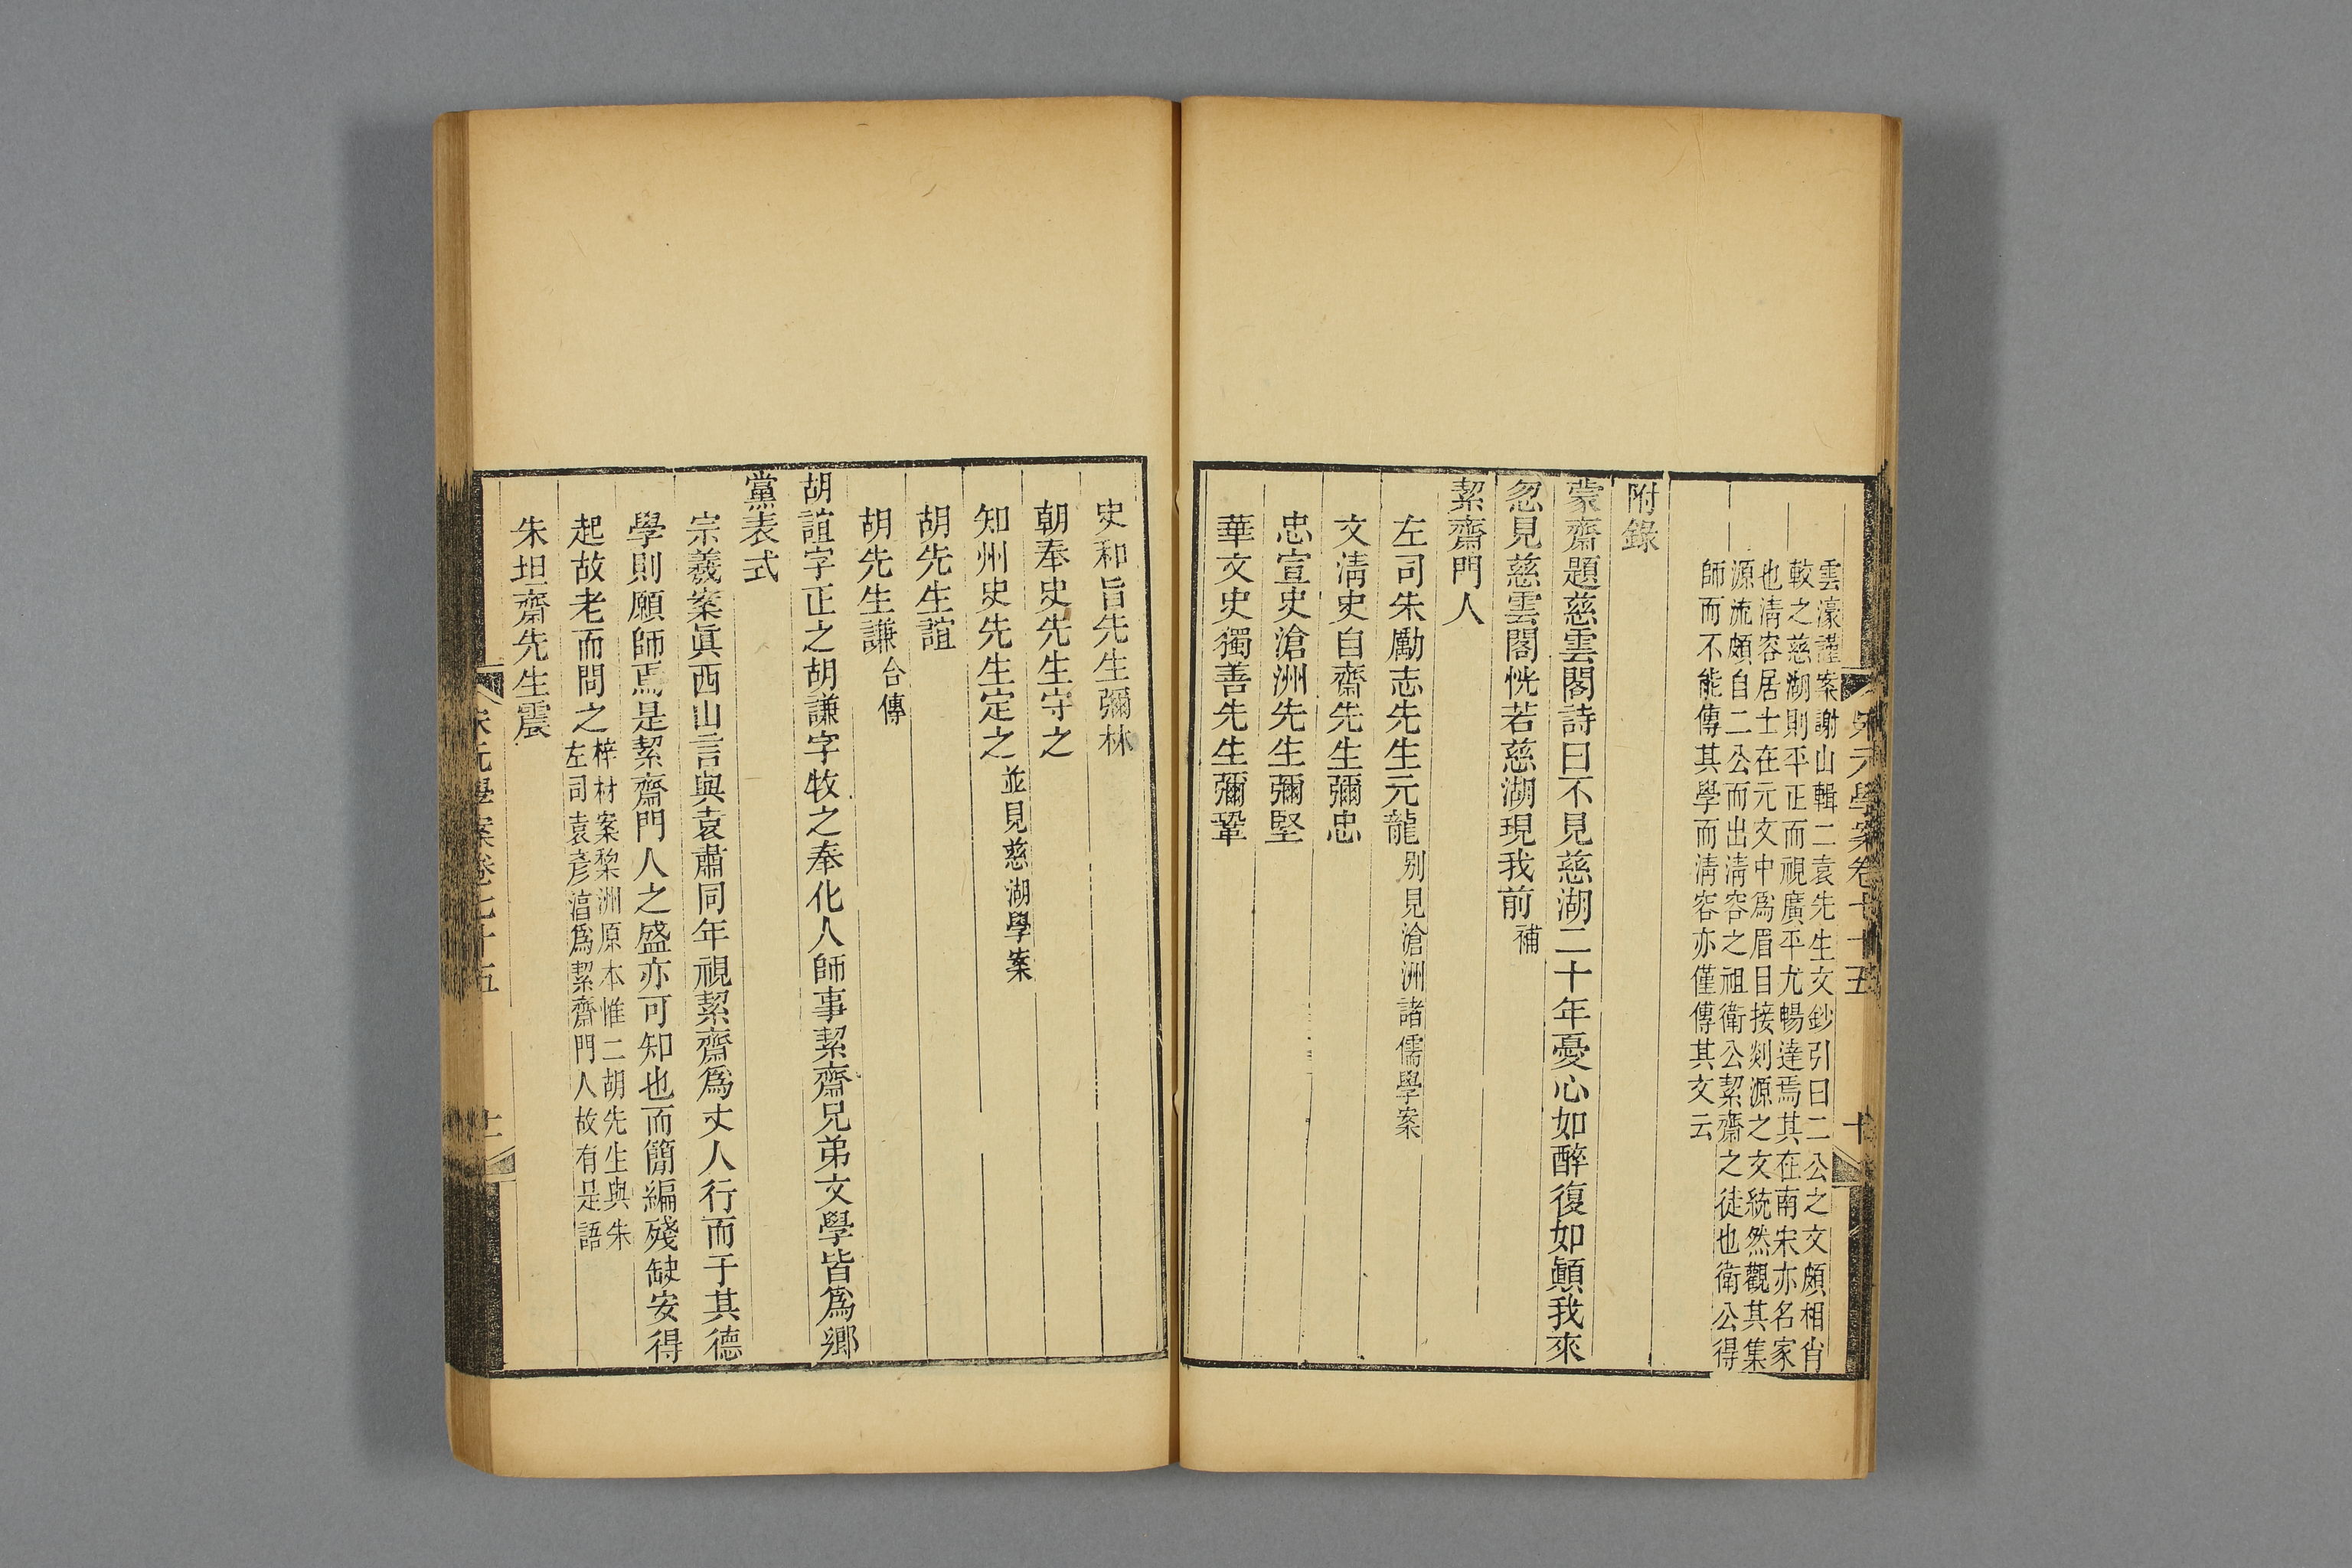 宋元學案卷七十五
十
雲濠謹案謝山輯二袁先生文鈔引曰二公之文頗相肖
較之慈湖則平正而視廣平尤暢達焉其在南宋亦名家
也清容居士在元文中爲眉目接剡源之文統然觀其集
源流頗自二公而出清容之祖衛公絜齋之徒也衛公得
師而不能傳其學而清容亦僅傳其文云
附錄
蒙齋題慈雲閣詩曰不見慈湖二十年憂心如醉復如顚我來
忽見慈雲閣恍若慈湖現我前補
絜齋門人
左司朱勵志先生元龍別見滄洲諸儒學案
文清史自齋先生彌忠
忠宣史滄洲先生彌堅
華文史獨善先生彌鞏
史和旨先生彌林
朝奉史先生守之
知州史先生定之並見慈湖學案
胡先生誼
胡先生謙合傳
胡誼字正之胡謙字牧之奉化人師事絜齋兄弟文學皆爲鄉
黨表式
宗羲案眞西山言與袁肅同年視絜齋爲丈人行而于其德
學則願師焉是絜齋門人之盛亦可知也而簡編殘缺安得
起故老而問之梓材案梨洲原本惟二胡先生與朱
左司袁彥淳爲絜齋門人故有是語
朱坦齋先生震
宋元學案卷七十五
十一